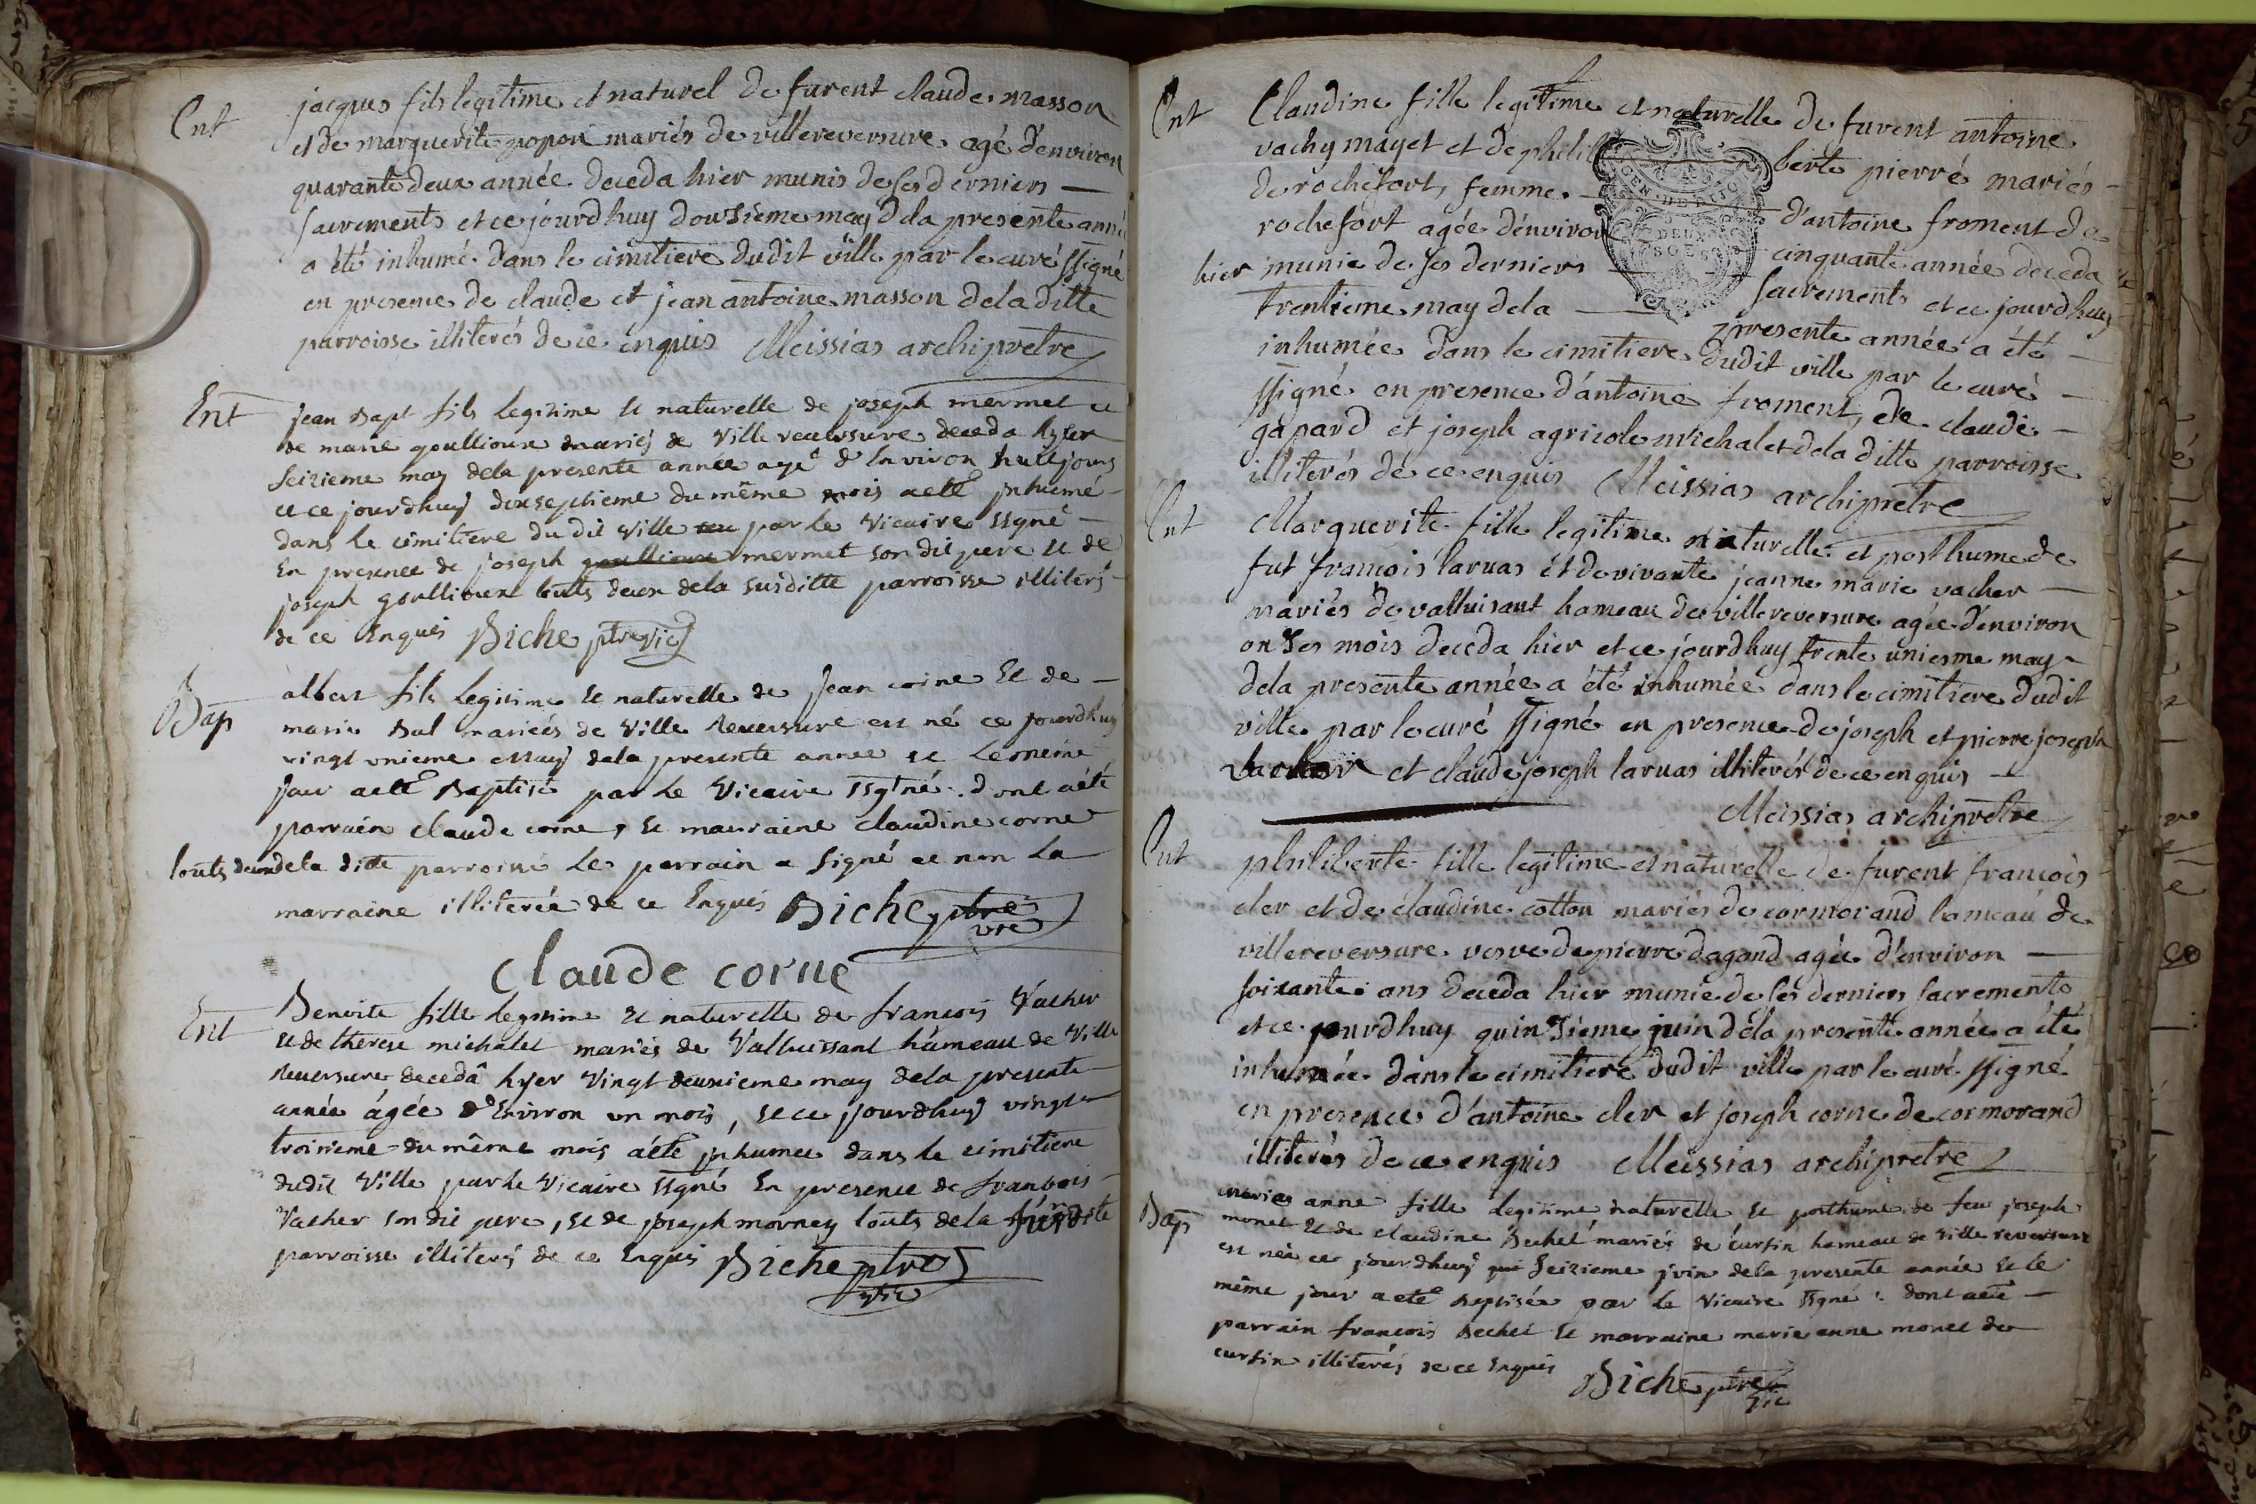 Ent
jacques fils legitime et naturel de furent claude masson
et de marguerite popon mariés de villereversure agé d'environ
quarante deux année deceda hier munis de ses derniers —
sacrements et ce jourd huy douzieme may dela presente année
a été inhumé dans le cimitiere dudit ville par le curé ssigné
en presence de claude et jean antoine masson dela ditte
parroisse illiterés de ce enquis Meissias archipretre
Ent
jean Bapt fils legitime et naturelle de joseph mermet et
de marie goullioux mariés de Ville reversure deceda hyer
seizieme may dela presente année agé d'Environ huit jours
et ce jourdhuy dixseptieme du même mois aeté jnhumé
dans le cimitiere dudit Ville par le Vicaire ssigné —
En presence de joseph goullioux mermet son dit pere et de
joseph goullioux touts deux dela susditte parroisse illiterés
de ce Enquis Biche ptre vic
Bap
albert fils legitime et naturelle de jean corne et de —
marie Bal mariés de Ville Reversure est né ce jourdhuy
vingt unieme may dela presente année et le meme
jour aeté Baptisé par le Vicaire ssigné. dont aété
parrain claude corne, et marraine claudine corne
touts deux dela ditte parroisse le parrain a signé et non la
marraine illiterée de ce Enquis Biche ptre
vre
claude corne
Ent
Benoite fille legitime et naturelle de francois Vacher
et de therese michalet mariés de Valluissant hameau de Ville
Reversure deceda hyer Vingt deuxieme may dela presente
année âgée d'Environ un mois, et ce jourdhuy vingt
troisieme du même mois aété jnhumée dans le cimitiere
dudit Ville par le Vicaire ssigné En presence de francois
Vacher son dit pere, et de joseph mornay touts dela susditte
parroisse illiterés de ce Enquis Biche ptre
vic
Ent
Claudine fille legitime et naturelle de furent antoine
vachy mayet et de philiberte pierre mariés —
de rochefort, femme — d'antoine froment de
rochefort agée d'environ cinquante année deceda
hier munie de ses derniers — sacrements et ce jourdhuy
trentieme may dela — presente année a été —
inhumée dans le cimitiere dudit ville par le curé —
ssigné en presence d'antoine froment, de claude —
gapard et joseph agricole michalet dela ditte parroisse
illiterés de ce enquis Meissias archipretre
GEN. DE
DEUX
Ent
Marguerite fille legitime naturelle et posthume de
fut francois laruas et de vivante jeanne marie vacher —
mariés de valluisant hameau de villereversure agée d'environ
onzes mois deceda hier et ce jourdhuy trente uniesme may
dela presente année a été inhumée dans le cimitiere dudit
ville par le curé ssigné en presence de joseph et pierre joseph
vacher et claude joseph laruas illiterés de ce enquis —
Meissias archipretre
Ent
philiberte fille legitime et naturelle de furent francois
cler et de claudine cotton mariés de cormorand hameau de
villereversure vesve de pierre dagand agée d'environ —
soixante ans deceda hier munie de ses derniers sacrements
et ce jourdhuy quinzieme juin dela presente année a été
inhumée dans le cimitiere dudit ville par le curé ssigné
en presence d'antoine cler et joseph corne de cormorand
illiterés de ce enquis Meissias archipretre
Bap
marie anne fille legitime naturelle et posthume de feu joseph
monet et de claudine Bechet mariés de cursin hameau de Ville reversure
est née ce jourdhuy seizieme juin dela presente année et le
même jour aeté Baptisée par le Vicaire ssigné : dont aeté —
parrain francois Bechet et marraine marie anne monet de
cursin illiterés de ce Enquis
Biche ptre
vic